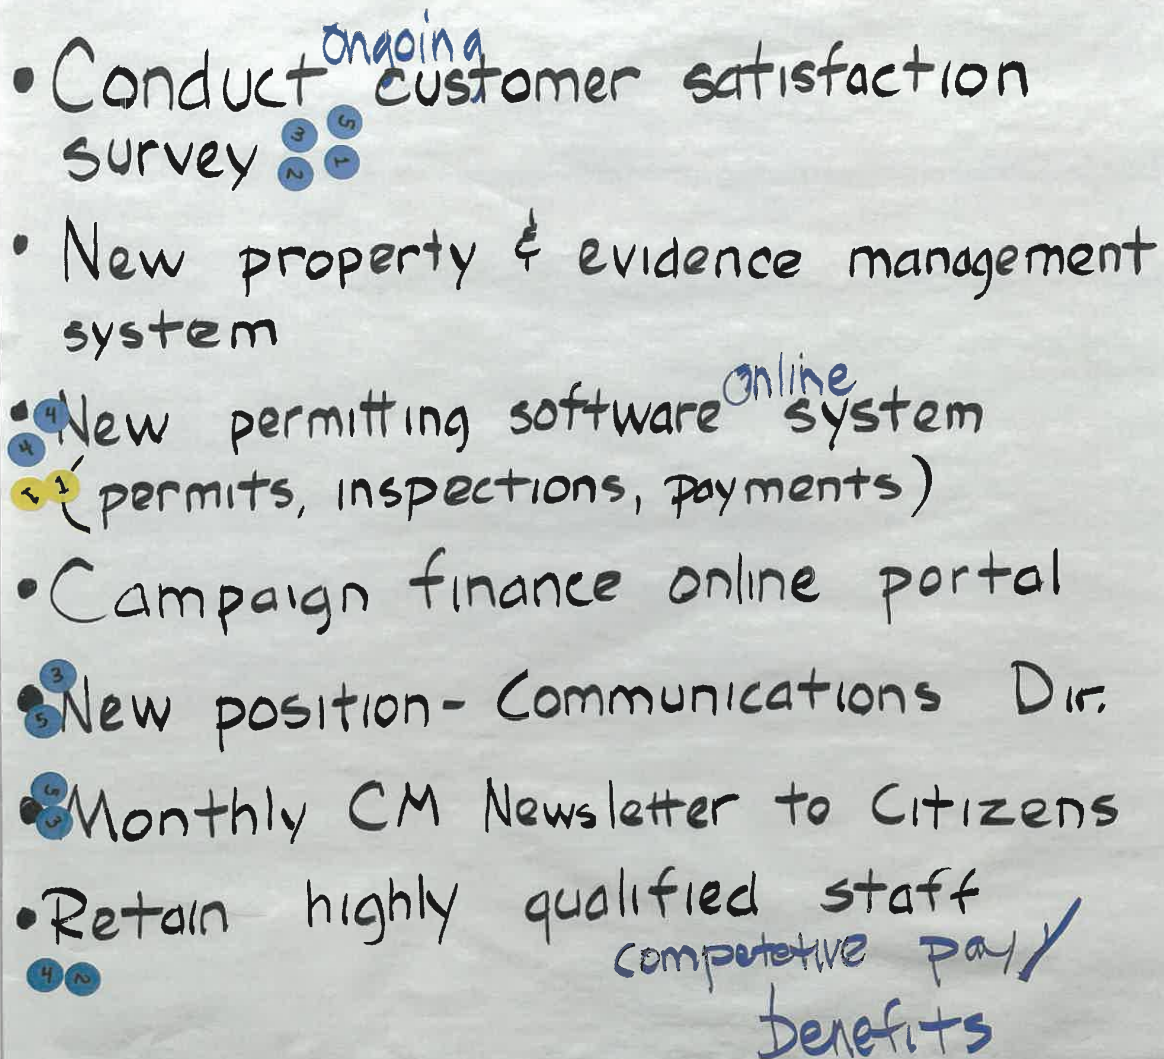 • Conduct ongoing customer satisfaction
survey 3 5 2 1
• New property & evidence management
system
• 4 New permitting software online system
4
1 1 (permits, inspections, payments)
• Campaign finance online portal
3
• 5 New position - Communications Dir.
5
• 3 Monthly CM Newsletter to Citizens
• Retain highly qualified staff
4 2 competetive pay/
benefits